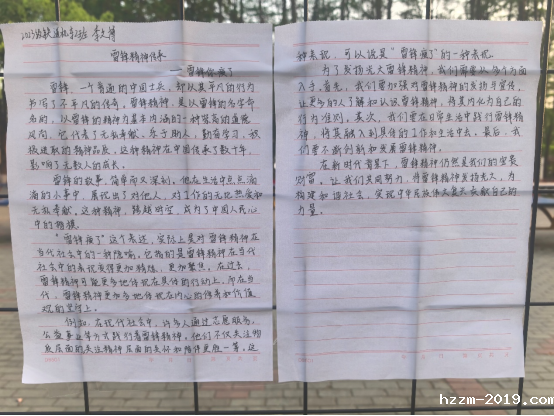 雷锋精神传承
——雷锋你瘦了
雷锋，一个普通的中国士兵，却以其平凡的行为
书写了不平凡的传奇。雷锋精神，是以雷锋的名字命
名的，以雷锋的精神为基本内涵的一种崇高的道德
风尚，它代表了无私奉献、乐于助人、勤奋学习、积
极进取的精神品质，这种精神在中国传承了数十年，
影响了无数人的成长。
雷锋的故事，简单而又深刻，他在生活中点点滴
滴的小事中，展现出了对他人、对工作的无比热爱和
无私奉献，这种精神，跨越时空，成为了中国人民心
中的楷模。
“雷锋瘦了”这个表述，实际上是对雷锋精神在
当代社会中的一种隐喻，它指的是雷锋精神在当代
社会中的表现变得更加精炼、更加聚焦。在过去，
雷锋精神可能更多地体现在具体的行动上，而在当
代，雷锋精神更加多地体现在内心的传承和价值
观的坚守上。
例如，在现代社会中，许多人通过志愿服务、
公益事业等方式践行着雷锋精神，他们不仅关注物
质层面的关注精神层面的关怀和陪伴更胜一筹，这
种表现，可以说是“雷锋瘦了”的一种表现。
为了发扬光大雷锋精神，我们需要从多个方面
入手，首先，我们要加强对雷锋精神的宣扬和宣传，
让更多的人了解和认识雷锋精神，将其内化为自己的
行为准则，其次，我们要在日常生活中践行雷锋精
神，将其融入到具体的工作和生活中去，最后，我
们要不断创新和发展雷锋精神。
在新时代背景下，雷锋精神仍然是我们的宝贵
财富，让我们共同努力，将雷锋精神发扬光大，为
构建和谐社会，实现中华民族伟大复兴贡献自己的
力量。
hzzm-2019.com